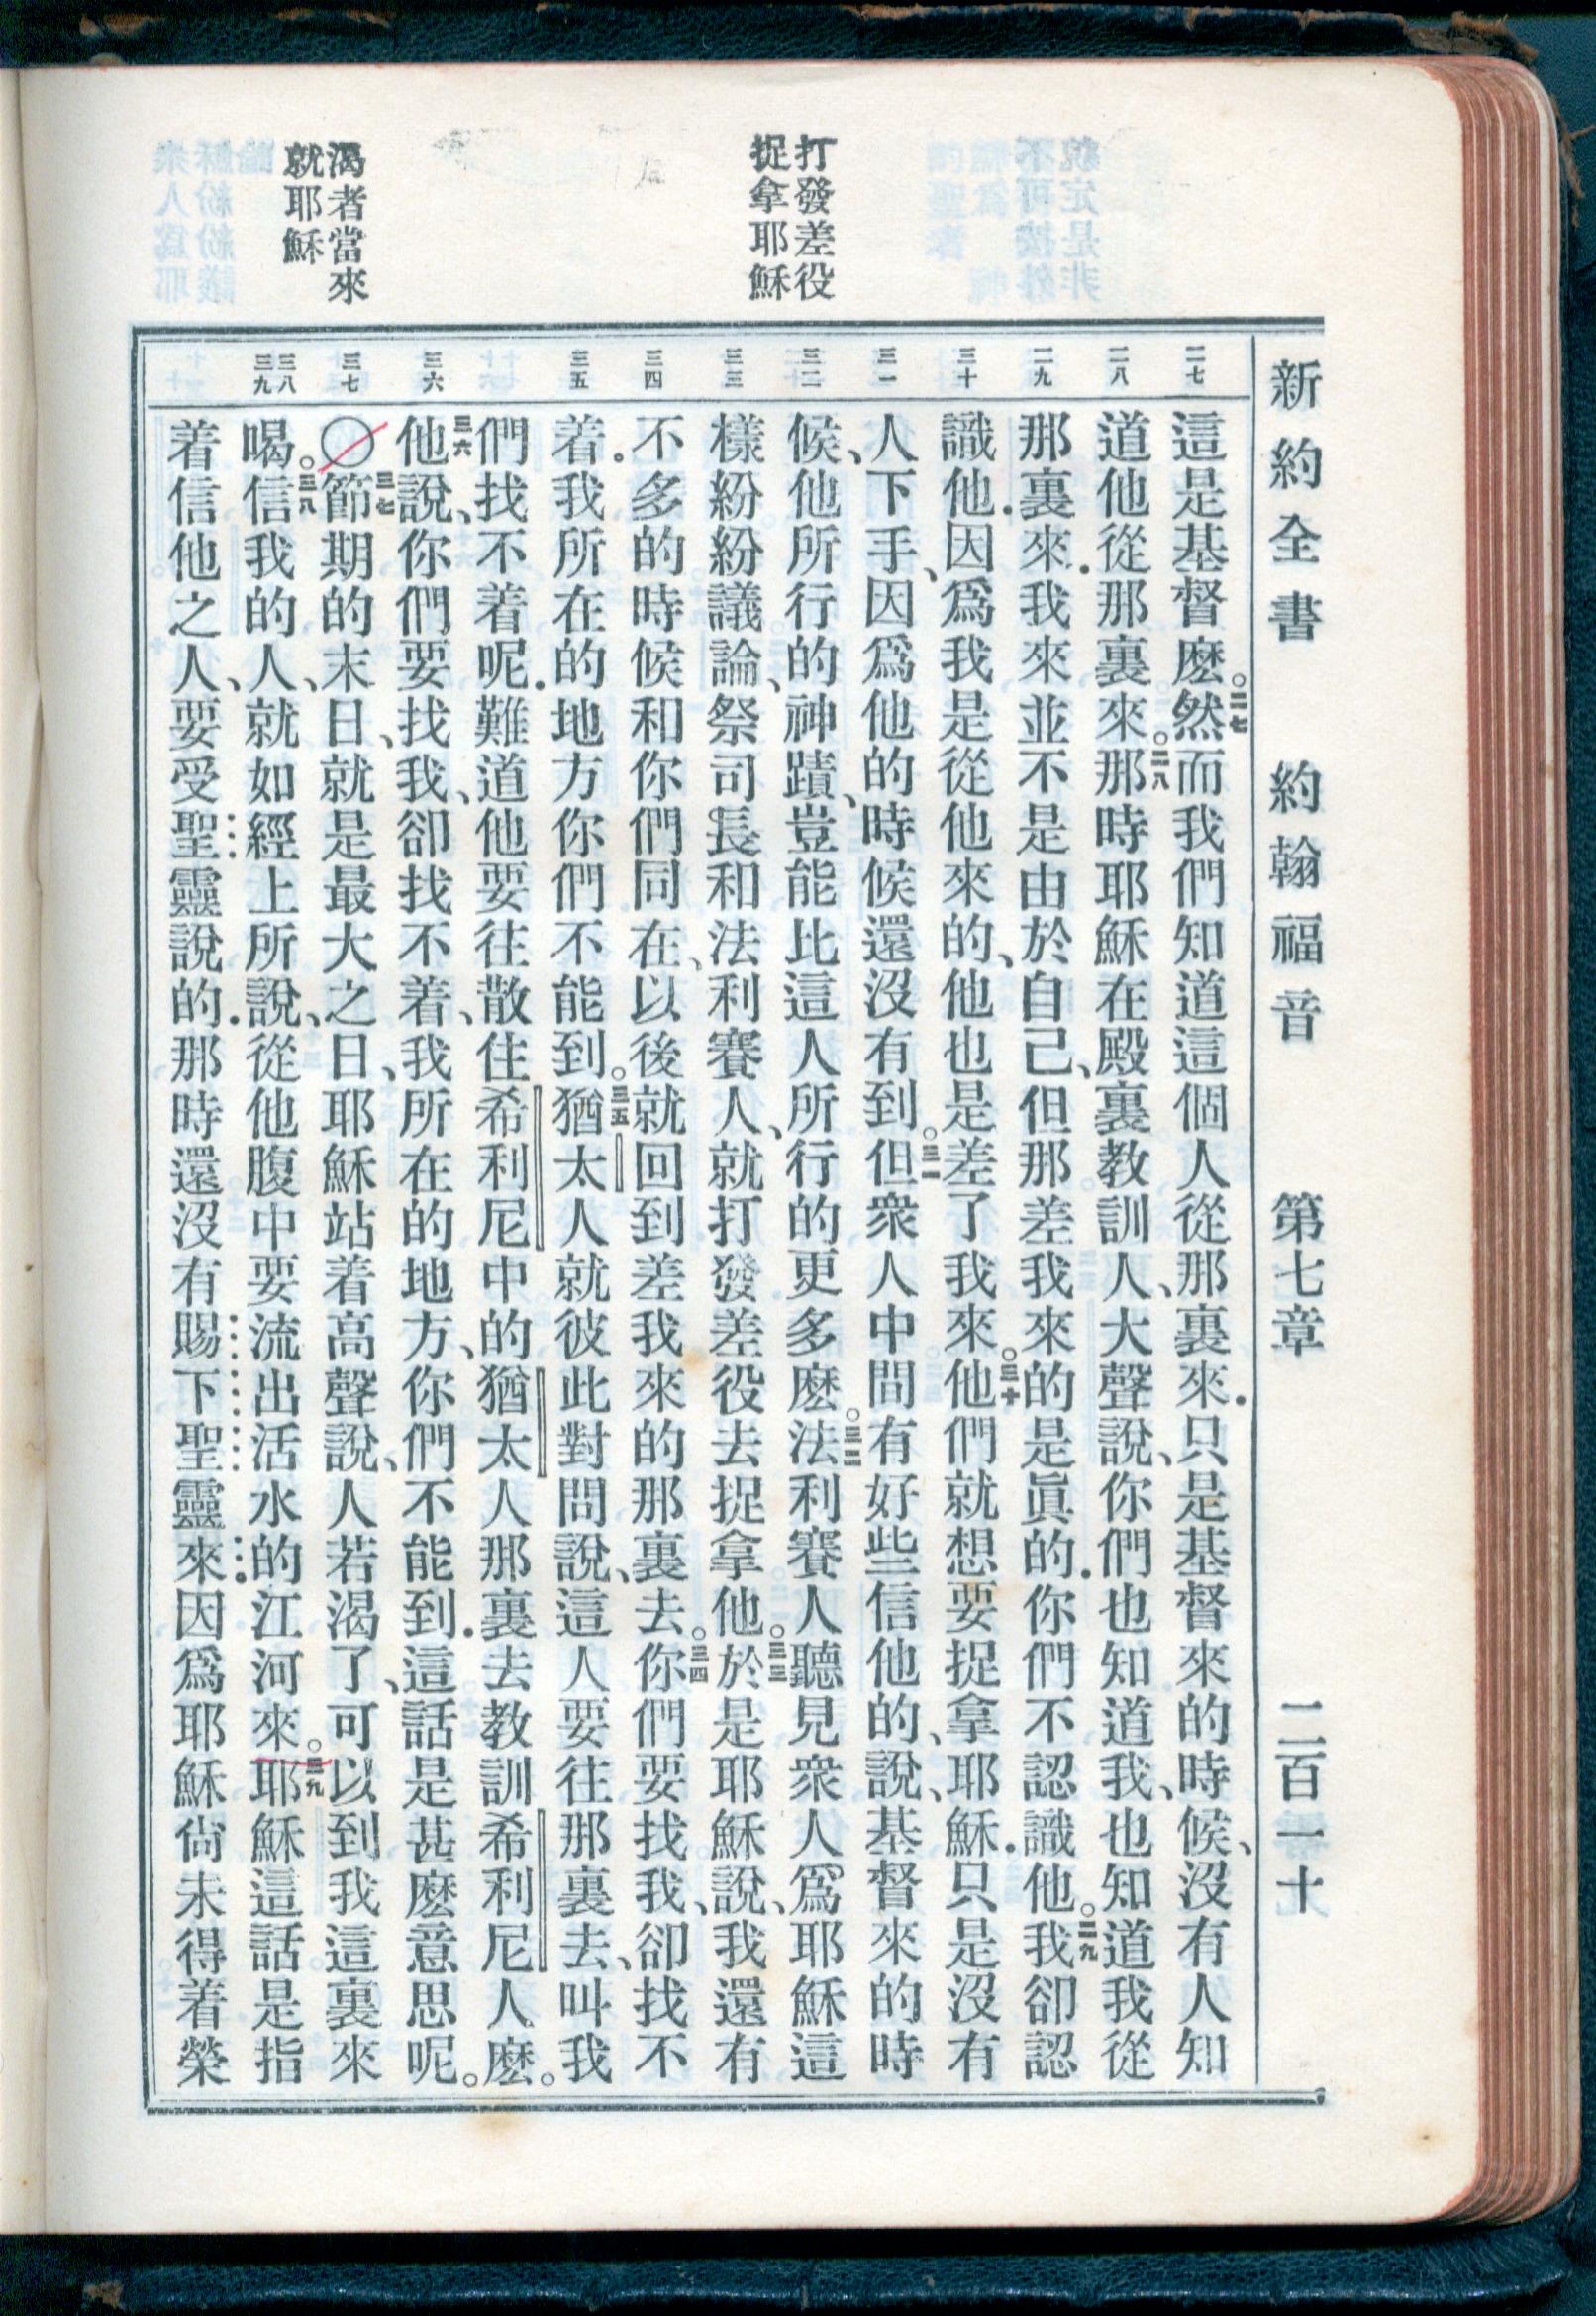 新約全書　約翰福音　第七章　二百一十
打發差役
捉拿耶穌
渴者當來
就耶穌
二七
二八
二九
三十
三一
三二
三三
三四
三五
三六
三七
三八
三九
這是基督麽。二七然而我們知道這個人從那裏來．只是基督來的時候、沒有人知
道他從那裏來。二八那時耶穌在殿裏教訓人、大聲說、你們也知道我、也知道我從
那裏來．我來並不是由於自己、但那差我來的是眞的．你們不認識他。二九我卻認
識他．因爲我是從他來的、他也是差了我來。三十他們就想要捉拿耶穌．只是沒有
人下手、因爲他的時候還沒有到。三一但衆人中間有好些信他的、說、基督來的時
候、他所行的神蹟、豈能比這人所行的更多麽。三二法利賽人聽見衆人爲耶穌這
樣紛紛議論、祭司長和法利賽人、就打發差役去捉拿他。三三於是耶穌說、我還有
不多的時候和你們同在、以後就回到差我來的那裏去。三四你們要找我、卻找不
着．我所在的地方你們不能到。三五猶太人就彼此對問說、這人要往那裏去、叫我
們找不着呢．難道他要往散住希利尼中的猶太人那裏去教訓希利尼人麽。
三六他說、你們要找我、卻找不着、我所在的地方、你們不能到．這話是甚麽意思呢。
〇三七節期的末日、就是最大之日、耶穌站着高聲說、人若渴了、可以到我這裏來
喝。三八信我的人、就如經上所說、從他腹中要流出活水的江河來。三九耶穌這話是指
着信他之人、要受聖靈說的．那時還沒有賜下聖靈來．因爲耶穌尙未得着榮